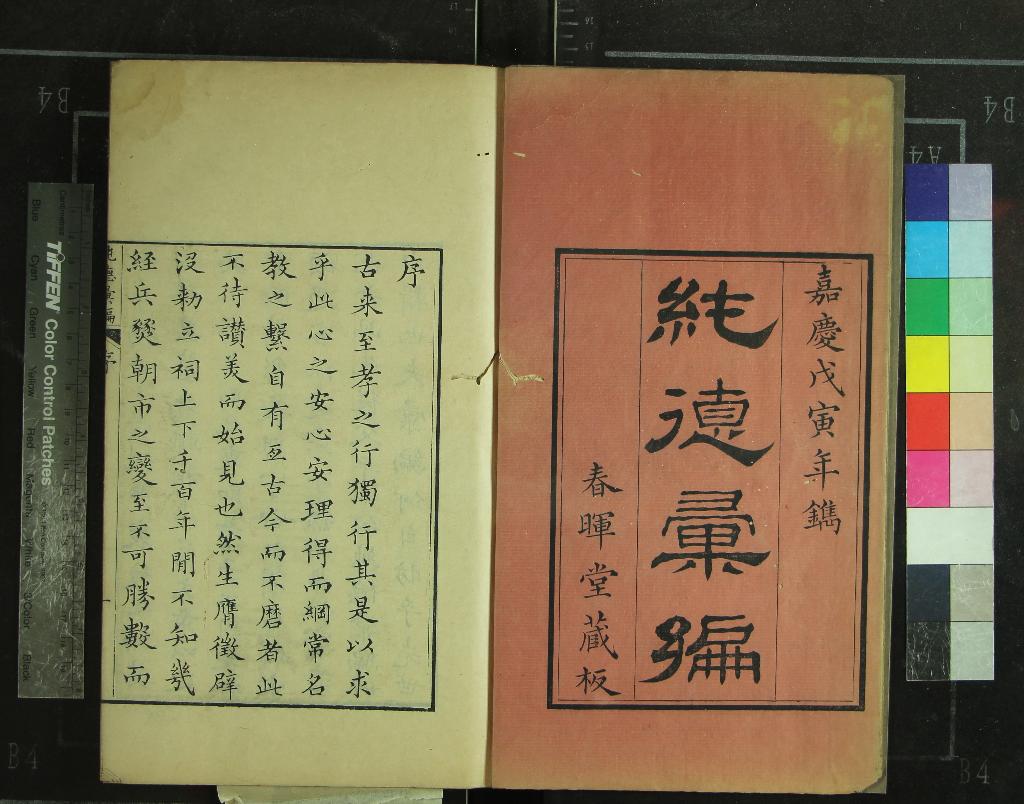 嘉慶戊寅年鐫
純德彙編
春暉堂藏板
序
古来至孝之行獨行其是以求
乎此心之安心安理得而綱常名
教之繫自有亙古今而不磨者此
不待讃羙而始見也然生膺徵辟
沒勑立祠上下千百年閒不知㡬
經兵燹朝市之變至不可勝數而
序
TIFFEN Color Control Patches
Blue Cyan Green Yellow Red Magenta White 3/Color Black
Centimetres
B4
B4
A4
B4
B4